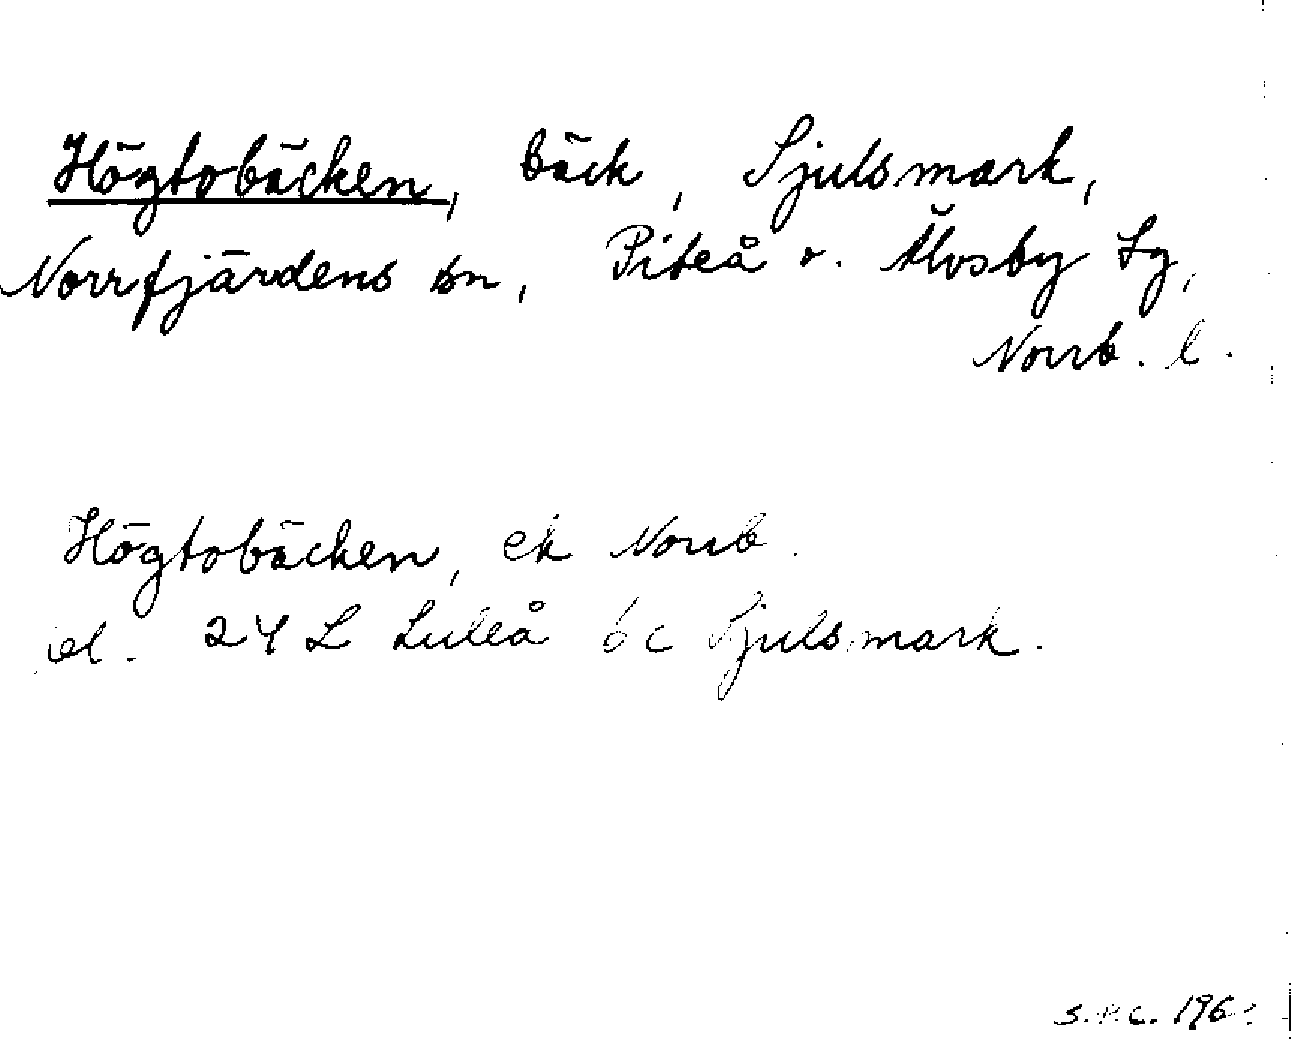 Högtobäcken, bäck, Sjulsmark,
Norrfjärdens sn, Piteå o. Älvsby tg,
Norrb. l.
Högtobäcken, ek Norrb.
id. 24 L Luleå 6c Sjulsmark.